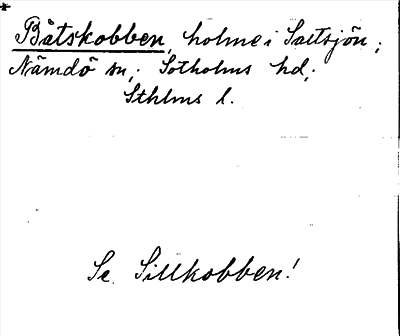 Båtskobben, holme i Saltsjön;
Nämdö sn; Sotholms hd;
Sthlms l.
Se Sillkobben!